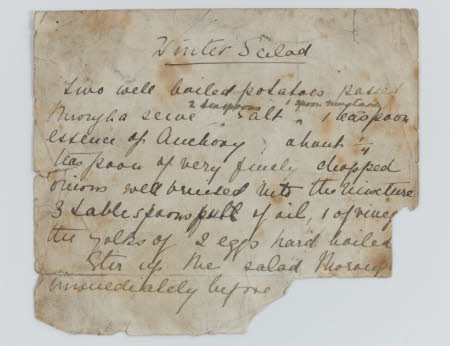 Winter Salad
Two well boiled potatoes passed
through a seive 2 teaspoons salt 1 spoon mustard 1 teaspoon
essence of Anchovy ; about 1/4
teaspoon of very finely chopped
onions well bruised into the mixture
3 tablespoons full of oil, 1 of vineg
the yolks of 2 eggs hard boiled
Stir up the salad thoroug
immediately before